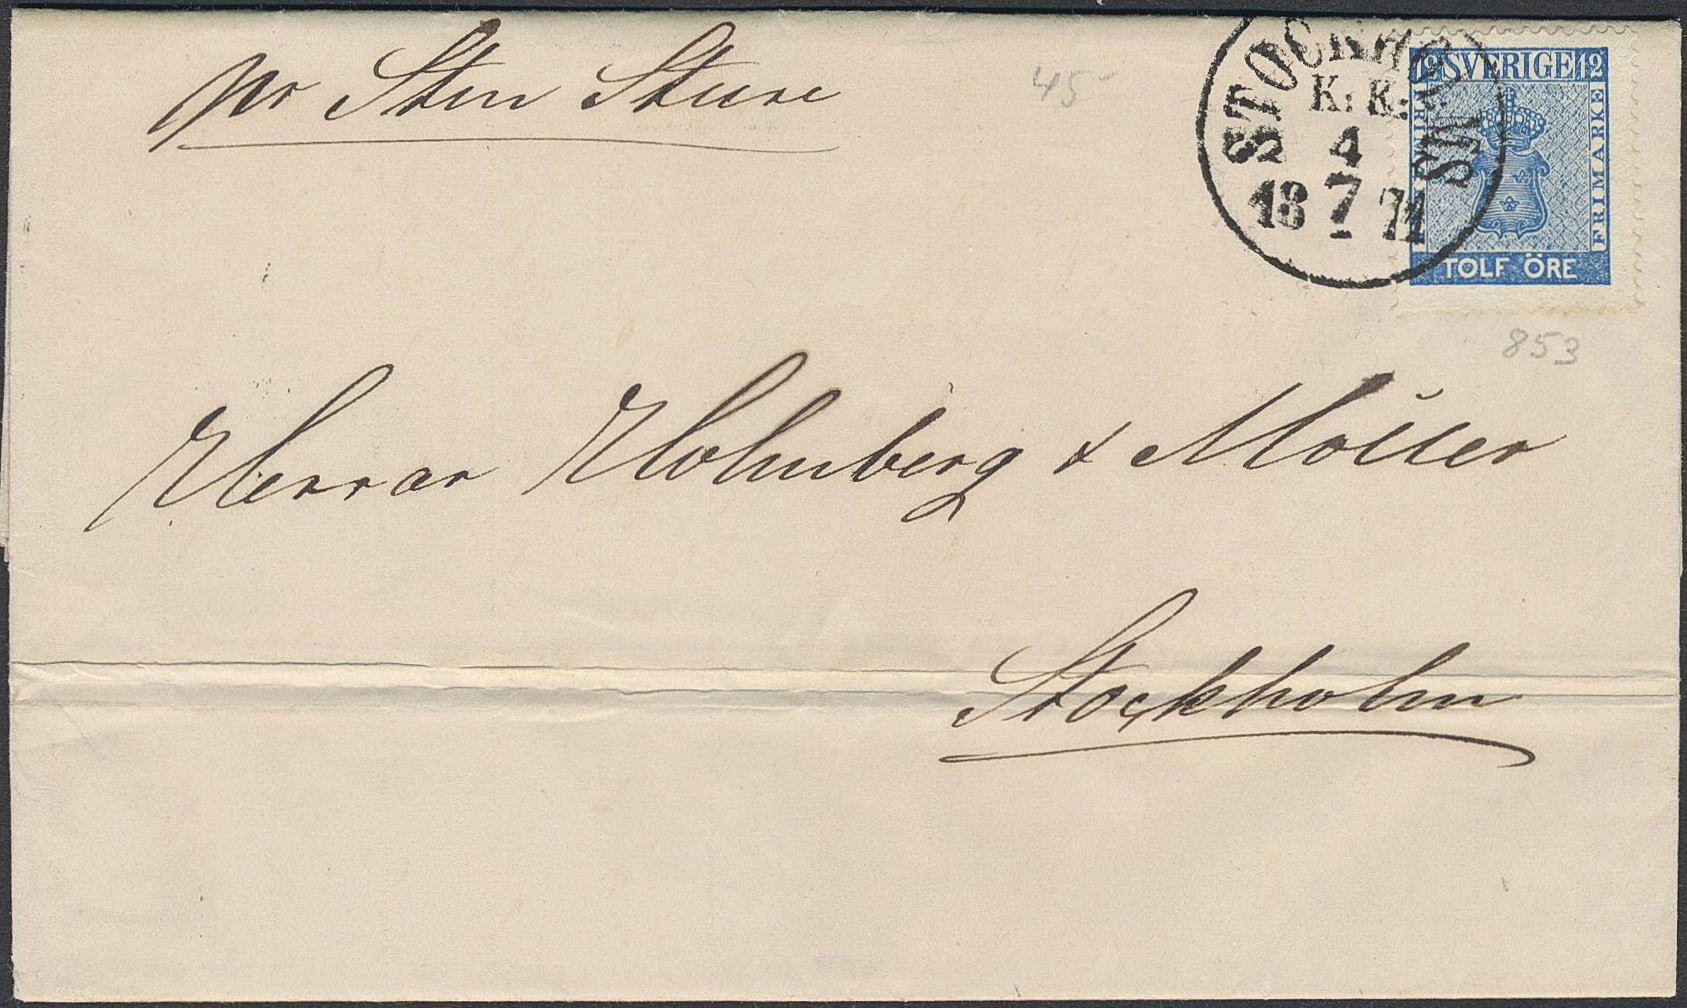 pr Sten Sture
45-
STOCKHOLMS
K: K:
4
18 7 71
12 SVERIGE 12
FRIMÄRKE FRIMÄRKE
TOLF ÖRE
853
Herrar Holmberg & Möller
Stockholm